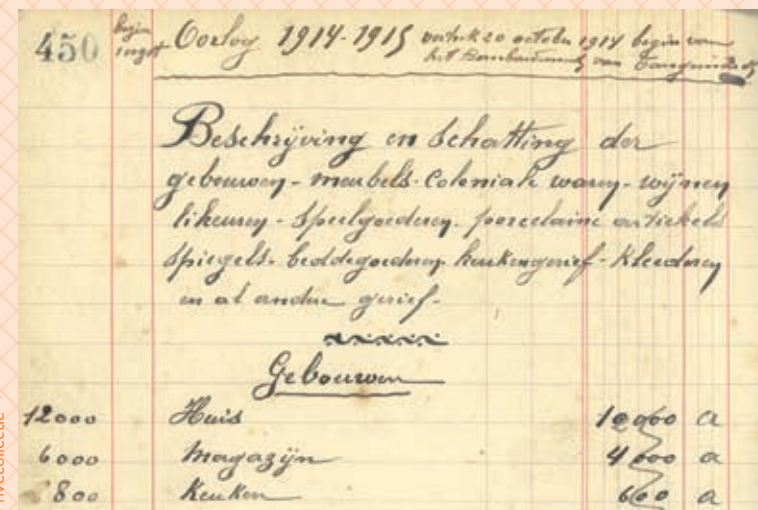 450
Oorlog 1914-1915 vertrek 20 october 1914 begin van
het Bombardement van
Beschrijving en Schatting der
gebouwen - meubels - Coloniale waren - wijnen
likeuren - Speelgoederen - porcelaine artickels
Spiegels - beddegoederen keukengerief - Kleederen
en al andere gerief -
Gebouwen
12000 Huis 10000 a
6000 Magazijn 4000 a
800 Keuken 600 a